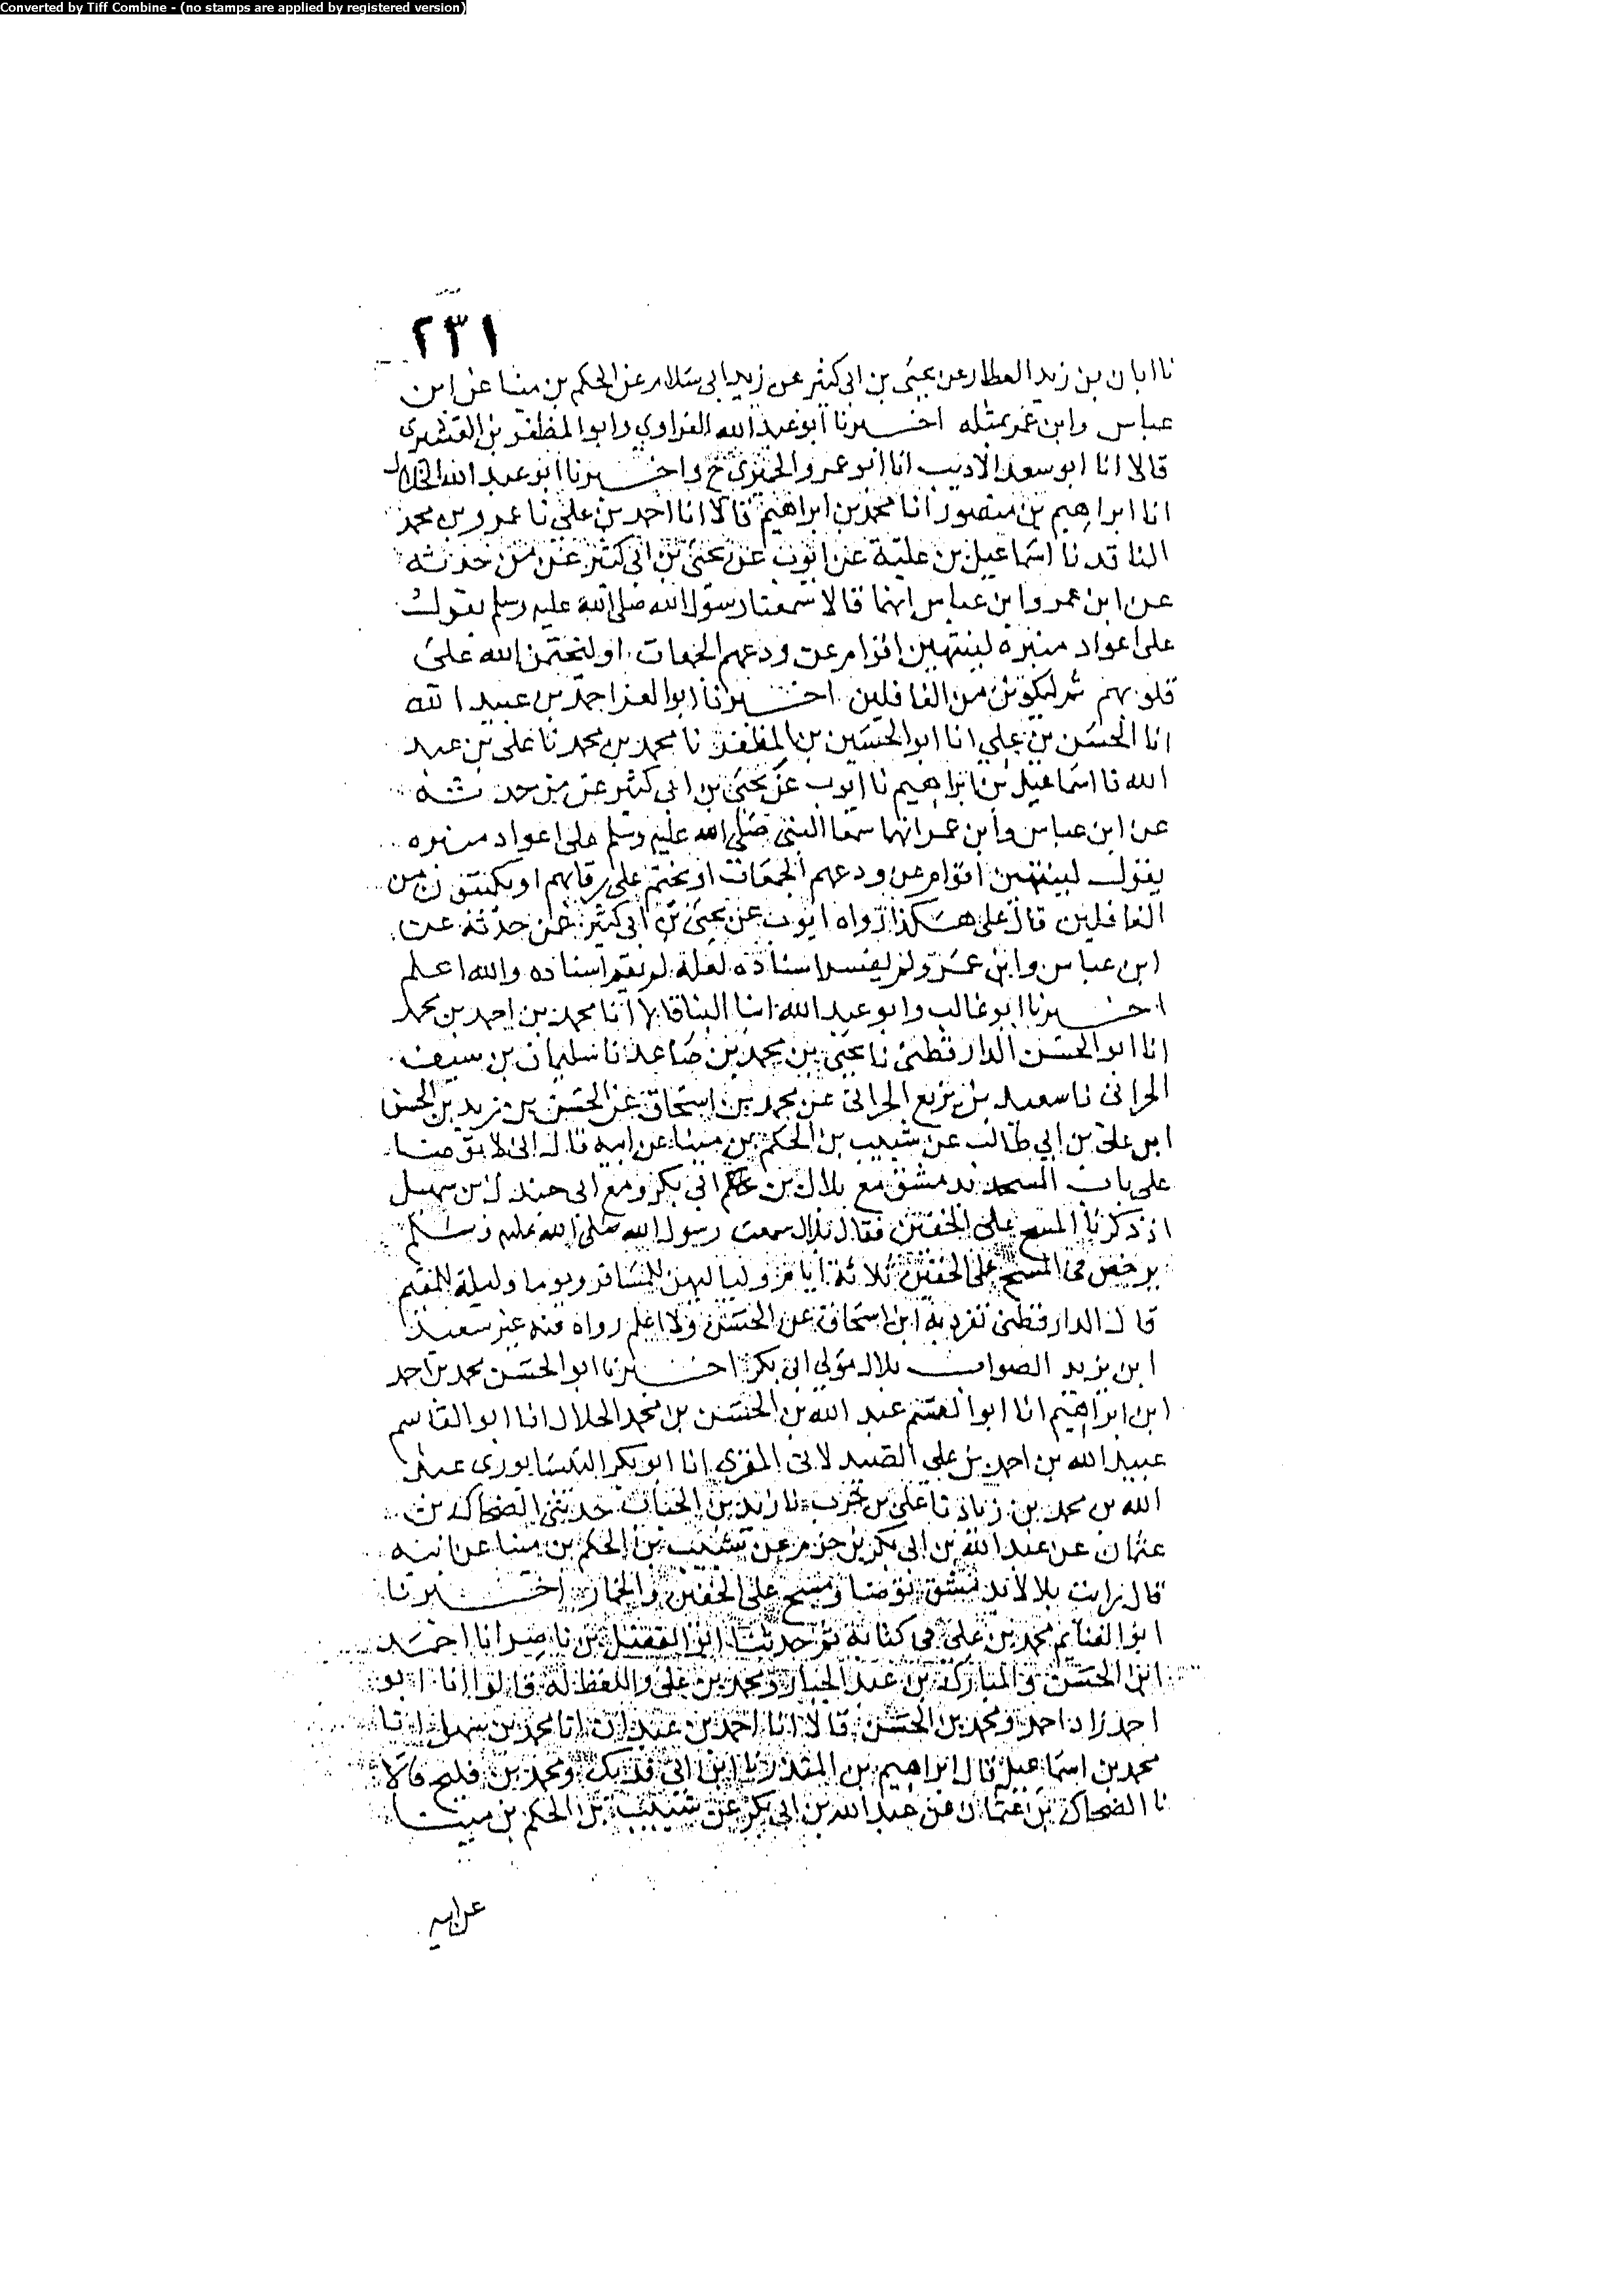 Converted by Tiff Combine - (no stamps are applied by registered version)
٢٣١
نا ابان بن زيد العطار عن يحيى بن ابى كثير عن زيد ابى سلام عن الحكم بن مينا عن ابن
عباس وابن عمر بمثله اخبرنا ابو عبد الله الفراوي وابو المظفر بن القشيرى
قالا انا ابو سعد الاديب انا ابو عمرو الحيرى ح واخبرنا ابو عبد الله الخلال
انا ابراهيم بن منصور انا محمد بن ابراهيم قالا انا احمد بن على نا عمرو بن محمد
الناقد نا اسماعيل بن علية عن ايوب عن يحيى بن ابى كثير عن من حدثه
عن ابن عمر وابن عباس انهما قالا سمعنا رسول الله صلى الله عليه وسلم يقول
على اعواد منبره لينتهين اقوام عن ودعهم الجمعات او ليختمن الله على
قلوبهم ثم ليكونن من الغافلين اخبرنا ابو العز احمد بن عبيد الله
انا الحسن بن علي انا ابو الحسين بن المظفر نا محمد بن محمد نا على بن عبد
الله نا اسماعيل بن ابراهيم نا ايوب عن يحيى بن ابى كثير عن من حدثه
عن ابن عباس وابن عمر انهما سمعا النبى صلى الله عليه وسلم على اعواد منبره
يقول لينتهين اقوام عن ودعهم الجمعات او يختم على رقابهم او يكتبون من
الغافلين قال على هكذا رواه ايوب عن يحيى بن ابى كثير عن من حدثه عن
ابن عباس وابن عمر ولم يفسر اسناده لعله لم يقم اسناده والله اعلم
اخبرنا ابو غالب وابو عبد الله ابنا البنا قالا انا محمد بن احمد بن محمد
انا ابو الحسن الدارقطنى نا يحيى بن محمد بن صاعد نا سليمان بن سيف
الحرانى نا سعيد بن بزيع الحرانى عن محمد بن اسحاق عن الحسن بن زيد بن الحسن
ابن على بن ابي طالب عن شبيب بن الحكم بن مينا عن ابيه قال انى لا توضا
على باب المسجد بدمشق مع بلال بن ابي بكر ومع ابى جندل بن سهيل
اذ ذكرنا المسح على الخفين فقال بلال سمعت رسول الله صلى الله عليه وسلم
يرخص فى المسح على الخفين ثلاثة ايام ولياليهن للمسافر ويوما وليلة للمقيم
قال الدارقطنى تفرد به ابن اسحاق عن الحسن ولا اعلم رواه عنه غير سعيد
ابن بزيد الصواب بلال مولى ابى بكر اخبرنا ابو الحسن محمد بن احمد
ابن ابراهيم انا ابو القسم عبد الله بن الحسن بن محمد الخلال انا ابو القاسم
عبيد الله بن احمد بن على الصيدلانى المقرى انا ابو بكر النيسابورى عبد
الله بن محمد بن زياد نا على بن حرب نا زيد بن الحباب حدثنى الضحاك بن
عثمان عن عبد الله بن ابى بكر بن حزم عن شبيب بن الحكم بن مينا عن ابيه
قال رايت بلالا بدمشق توضا ومسح على الخفين والخمار اخبرنا
ابو الغنايم محمد بن على فى كتابه ثم حدثنا ابو الفضل بن ناصر انا احمد
ابن الحسن والمبارك بن عبد الجبار ومحمد بن على واللفظ له قالوا انا ابو
احمد زاد احمد ومحمد بن الحسن قالا انا احمد بن عبدان انا محمد بن سهل انا
محمد بن اسماعيل قال ابراهيم بن المنذر نا ابن ابى فديك ومحمد بن فليح قالا
نا الضحاك بن عثمان عن عبد الله بن ابى بكر عن شبيب بن الحكم بن مينا
عن ابيه